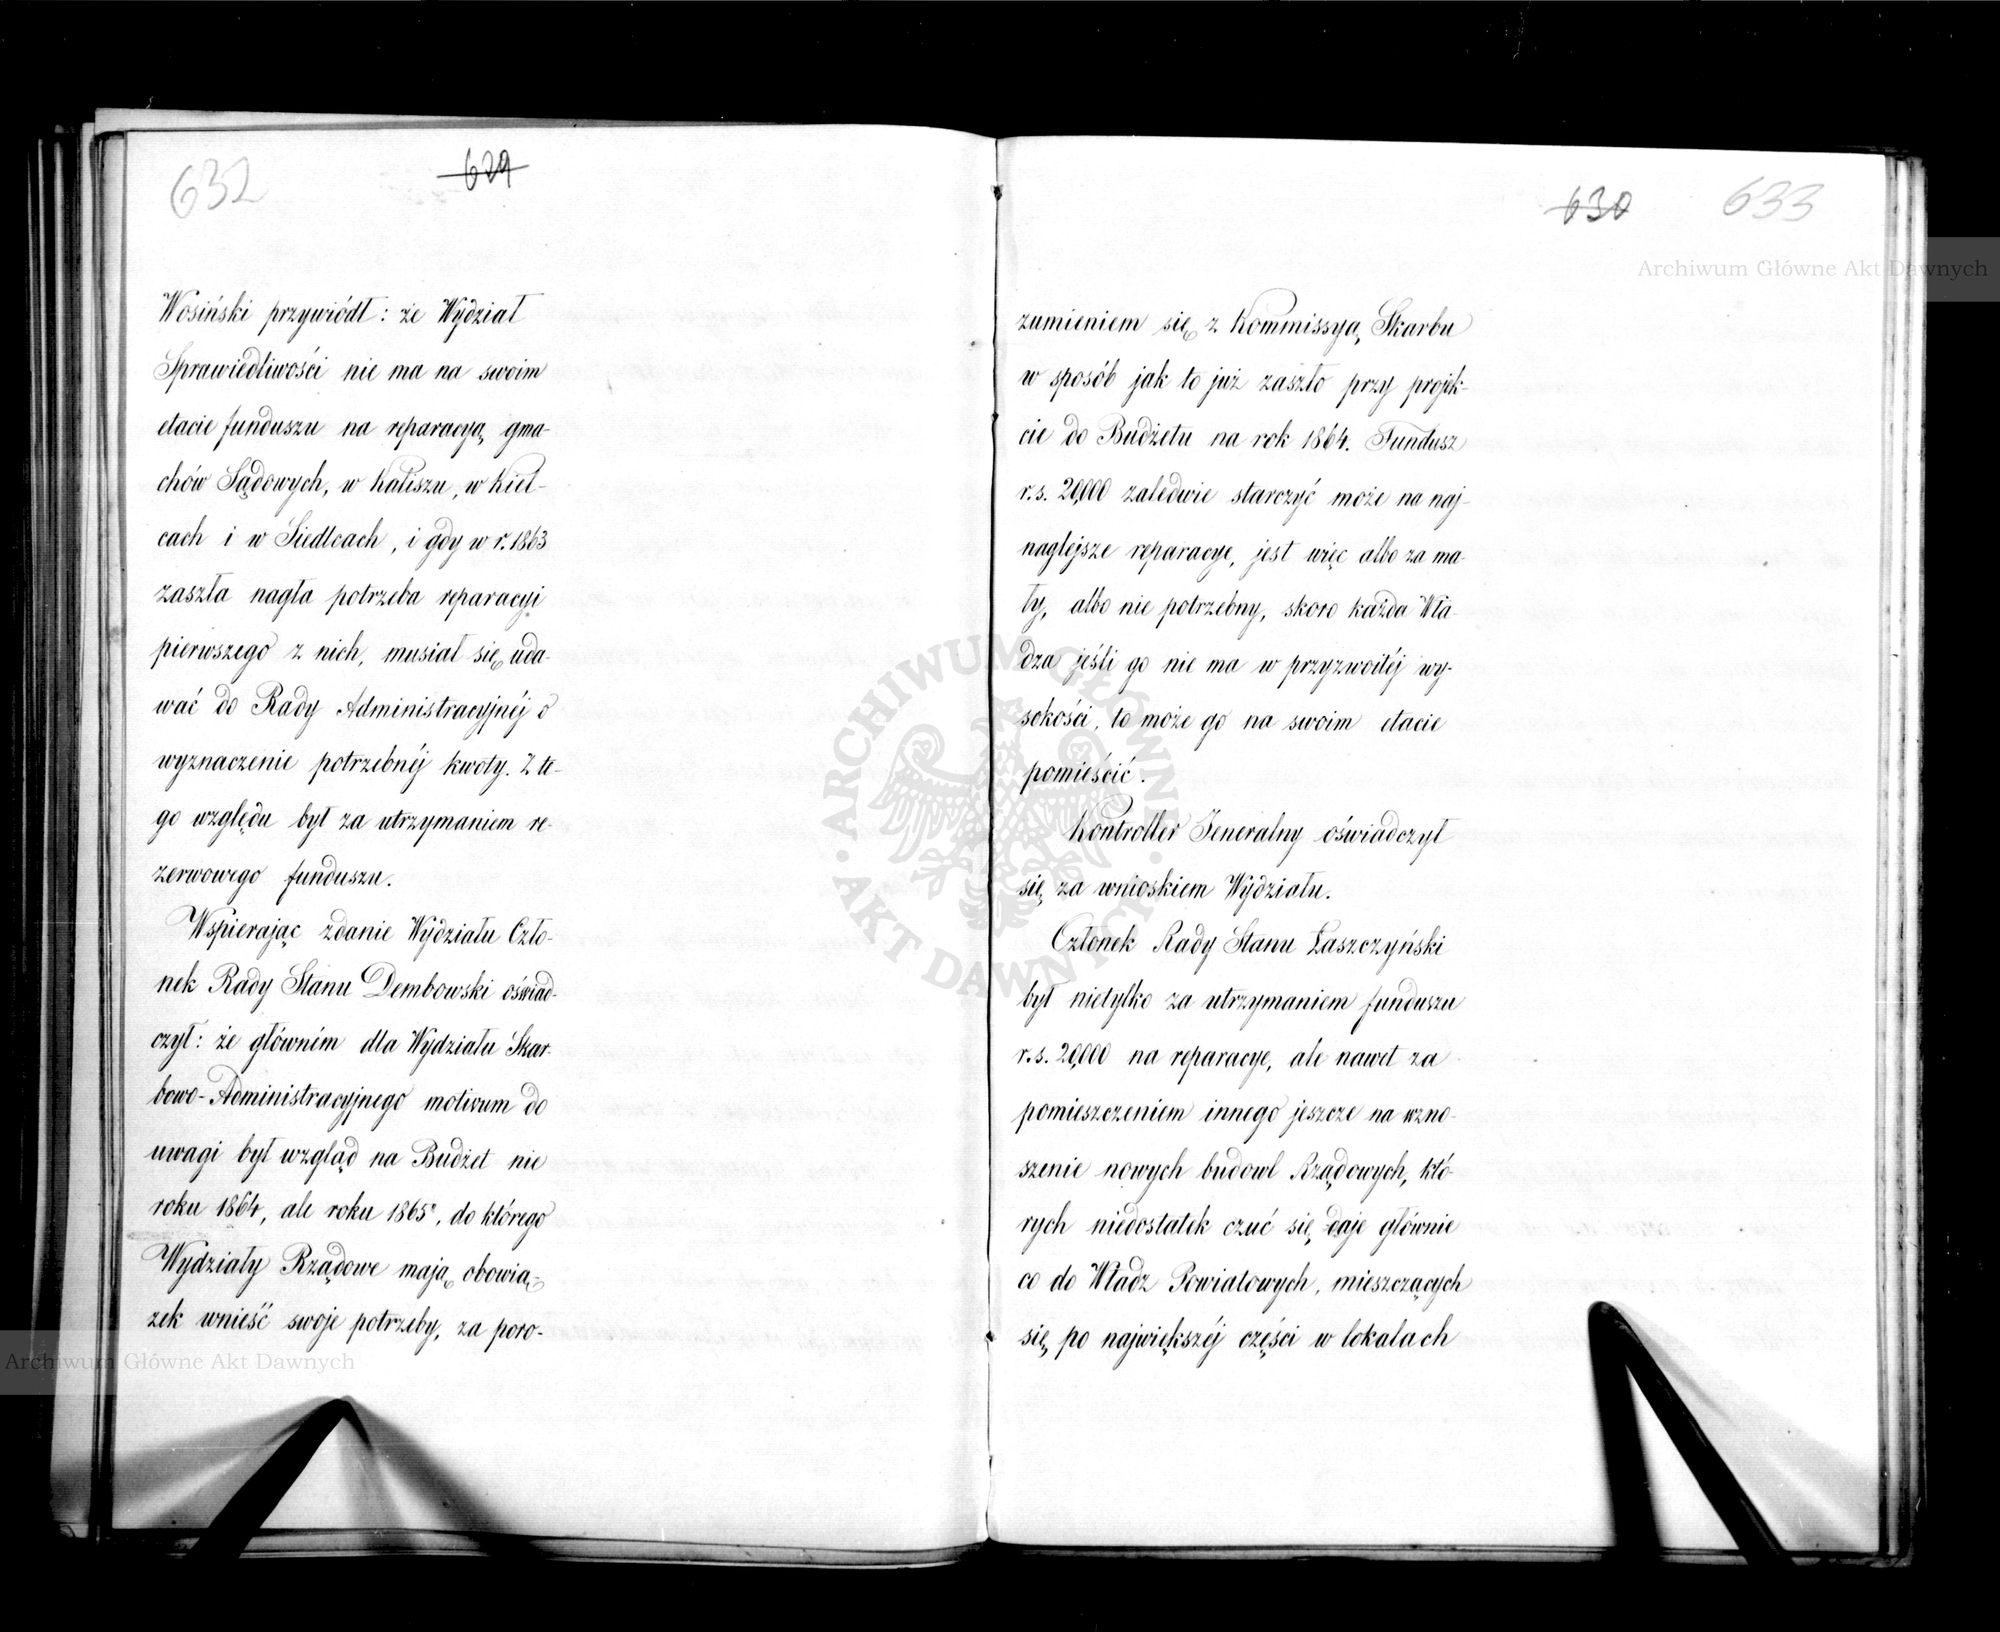 632
629
Wosiński przywiódł: że Wydział
Sprawiedliwości nie ma na swoim
etacie funduszu na reparacyą gma-
chów Sądowych, w Kaliszu, w Kiel-
cach i w Siedlcach, i gdy w r. 1863
zaszła nagła potrzeba reparacyi
pierwszego z nich, musiał się uda-
wać do Rady Administracyjnéj o
wyznaczenie potrzebnéj kwoty. Z te-
go względu był za utrzymaniem re-
zerwowego funduszu.
Wspierając zdanie Wydziału Czło-
nek Rady Stanu Dembowski oświad-
czył: że główném dla Wydziału Skar-
bowo-Administracyjnego motivum do
uwagi był wzgląd na Budżet nie
roku 1864, ale roku 1865, do którego
Wydziały Rządowe mają obowią-
zek wnieść swoje potrzeby, za poro-
630
633
Archiwum Główne Akt Dawnych
zumieniem się z Kommissyą Skarbu
w sposób jak to już zaszło przy projek-
cie do Budżetu na rok 1864. Fundusz
r.s. 20,000 zaledwie starczyć może na naj-
naglejsze reparacye, jest więc albo za ma-
ły, albo nie potrzebny, skoro każda Wła-
dza jeśli go nie ma w przyzwoitéj wy-
sokości, to może go na swoim etacie
pomieścić.
Kontroller Jeneralny oświadczył
się za wnioskiem Wydziału.
Członek Rady Stanu Łaszczyński
był nietylko za utrzymaniem funduszu
r.s. 20,000 na reparacye, ale nawet za
pomieszczeniem innego jeszcze na wzno-
szenie nowych budowl Rządowych, któ-
rych niedostatek czuć się daje głównie
co do Władz Powiatowych, mieszczących
się po największéj części w lokalach
Archiwum Główne Akt Dawnych
ARCHIWUM GŁÓWNE
AKT DAWNYCH